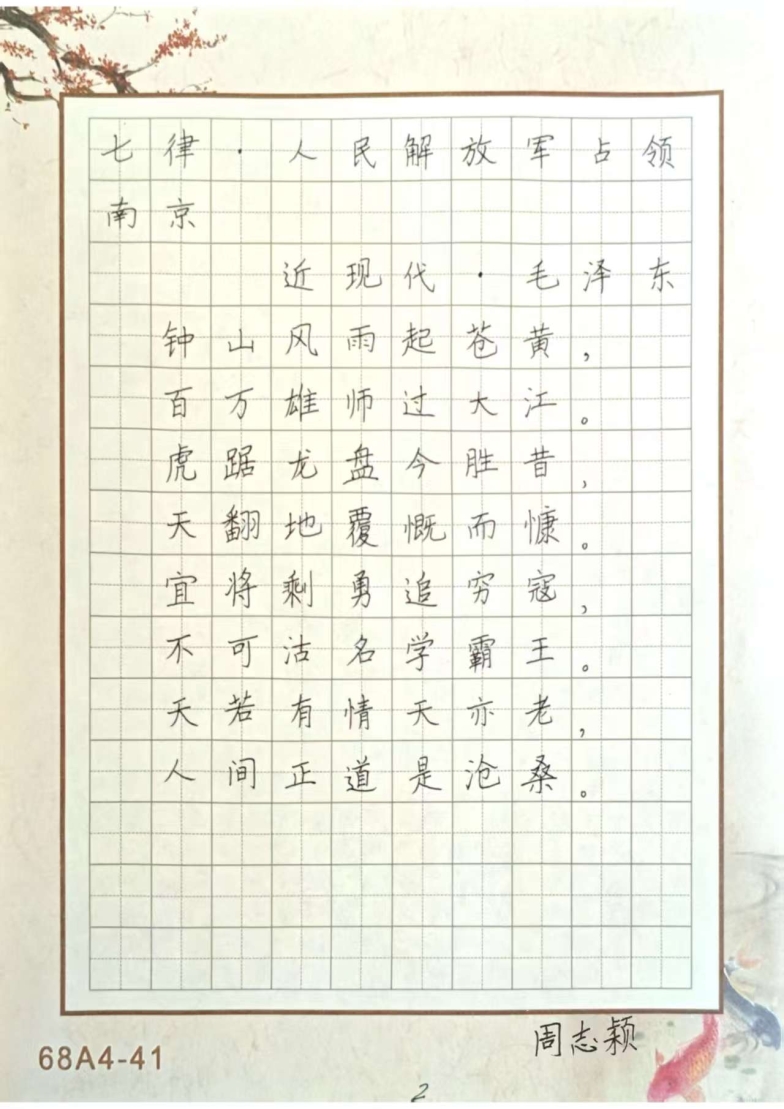 七律·人民解放军占领
南京
近现代·毛泽东
钟山风雨起苍黄，
百万雄师过大江。
虎踞龙盘今胜昔，
天翻地覆慨而慷。
宜将剩勇追穷寇，
不可沽名学霸王。
天若有情天亦老，
人间正道是沧桑。
周志颖
68A4-41
2